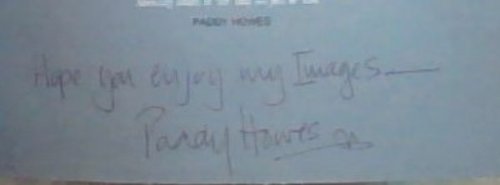 PADDY HOWES
Hope you enjoy my Images
Paddy Howes